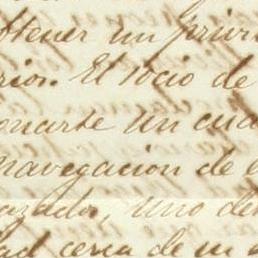 btener un privi
rior. El socio de
onarse un cua
navegacion de e
azado, uno de
dad cerca de un a